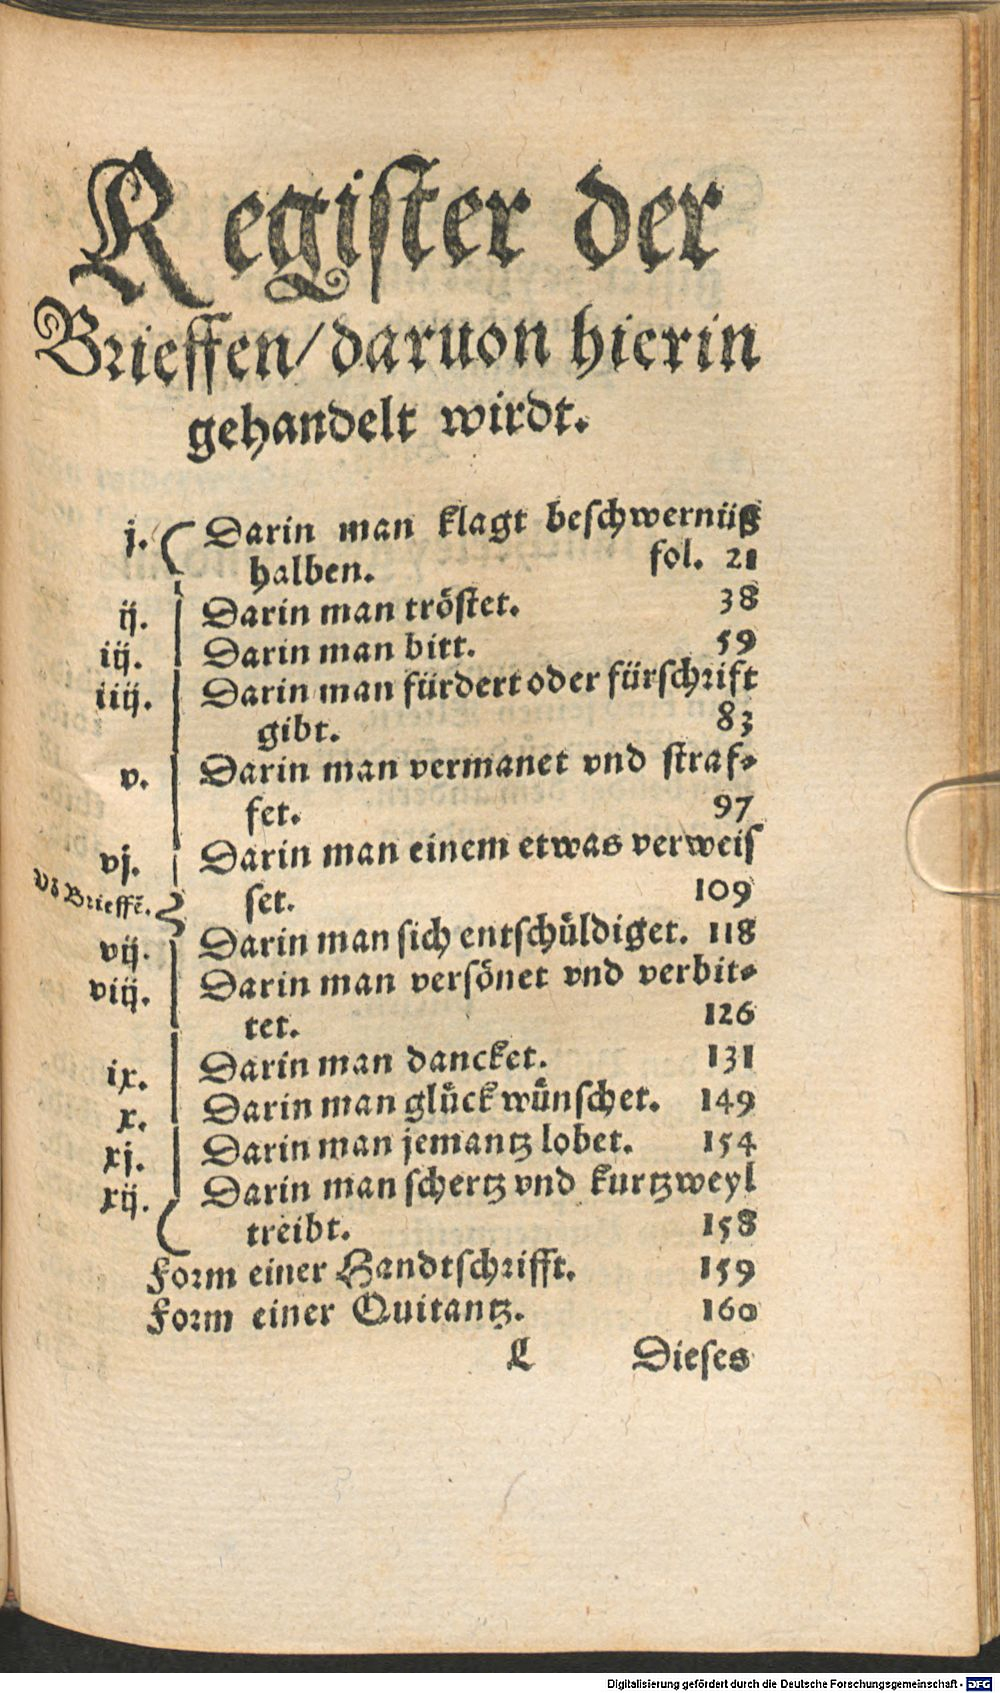 Register der
Brieffen/ daruon hierin
gehandelt wirdt.
j. Darin man klagt beschwernüß
halben. fol. 21
ij. Darin man tröstet. 38
iij. Darin man bitt. 59
iiij. Darin man fürdert oder fürschrift
gibt. 83
v. Darin man vermanet vnd straf-
fet. 97
vj. Darin man einem etwas verweis
set. 109
Vō Brieffē.
vij. Darin man sich entschüldiget. 118
viij. Darin man versönet vnd verbit-
tet. 126
ix. Darin man dancket. 131
x. Darin man glück wünschet. 149
xj. Darin man jemantz lobet. 154
xij. Darin man schertz vnd kurtzweyl
treibt. 158
Form einer Handtschrifft. 159
Form einer Quitantz. 160
L Dieses
Digitalisierung gefördert durch die Deutsche Forschungsgemeinschaft - DFG